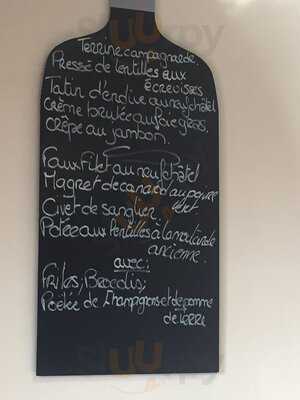 Terrine campagnarde.
Pressé de lentilles aux
écrevisses
Tatin d'endive au neufchâtel
Crème brulée au foie gras.
Crêpe au jambon.
Faux Filet au neufchâtel
Magret de canard au poivre
vert.
Civet de sanglier
Potée aux lentilles à la moutarde
ancienne.
avec:
Frites, Brocolis,
Poêlée de champignons et de pomme
de terre